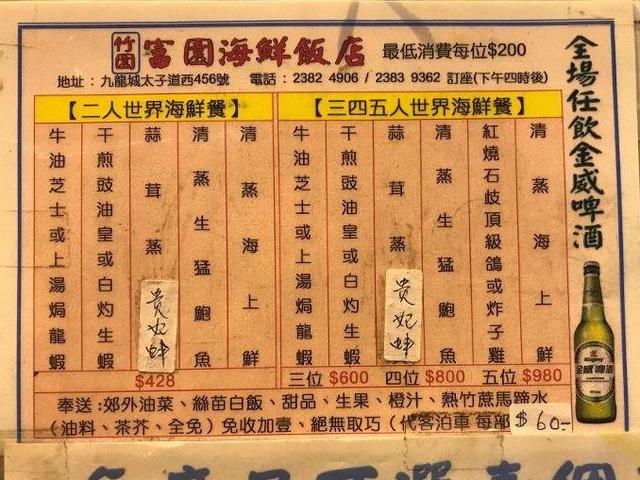 竹園 富園海鮮飯店 最低消費每位$200
地址：九龍城太子道西456號 電話：2382 4906 / 2383 9362 訂座(下午四時後)
全場任飲金威啤酒
【二人世界海鮮餐】
清蒸海上鮮
清蒸生猛鮑魚
蒜茸蒸貴妃蚌
干煎豉油皇或白灼生蝦
牛油芝士或上湯焗龍蝦
$428
【三四五人世界海鮮餐】
清蒸海上鮮
紅燒石歧頂級鴿或炸子雞
清蒸生猛鮑魚
蒜茸蒸貴妃蚌
干煎豉油皇或白灼生蝦
牛油芝士或上湯焗龍蝦
三位 $600 四位 $800 五位 $980
奉送：郊外油菜、絲苗白飯、甜品、生果、橙汁、熱竹蔗馬蹄水
(油料、茶芥、全免) 免收加壹、絕無取巧 (代客泊車 每部 $60-
Kingway
金威啤酒